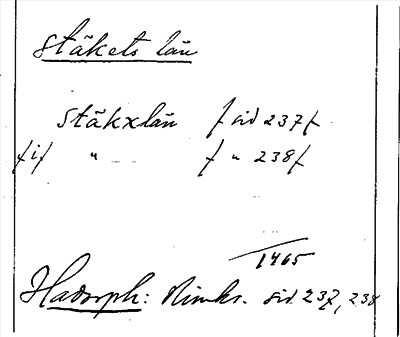 Stäkets län
Stäkxlän / sid 237 /
/ i / " / " 238 /
1465
Hadorph: Rimkr. sid. 237, 238